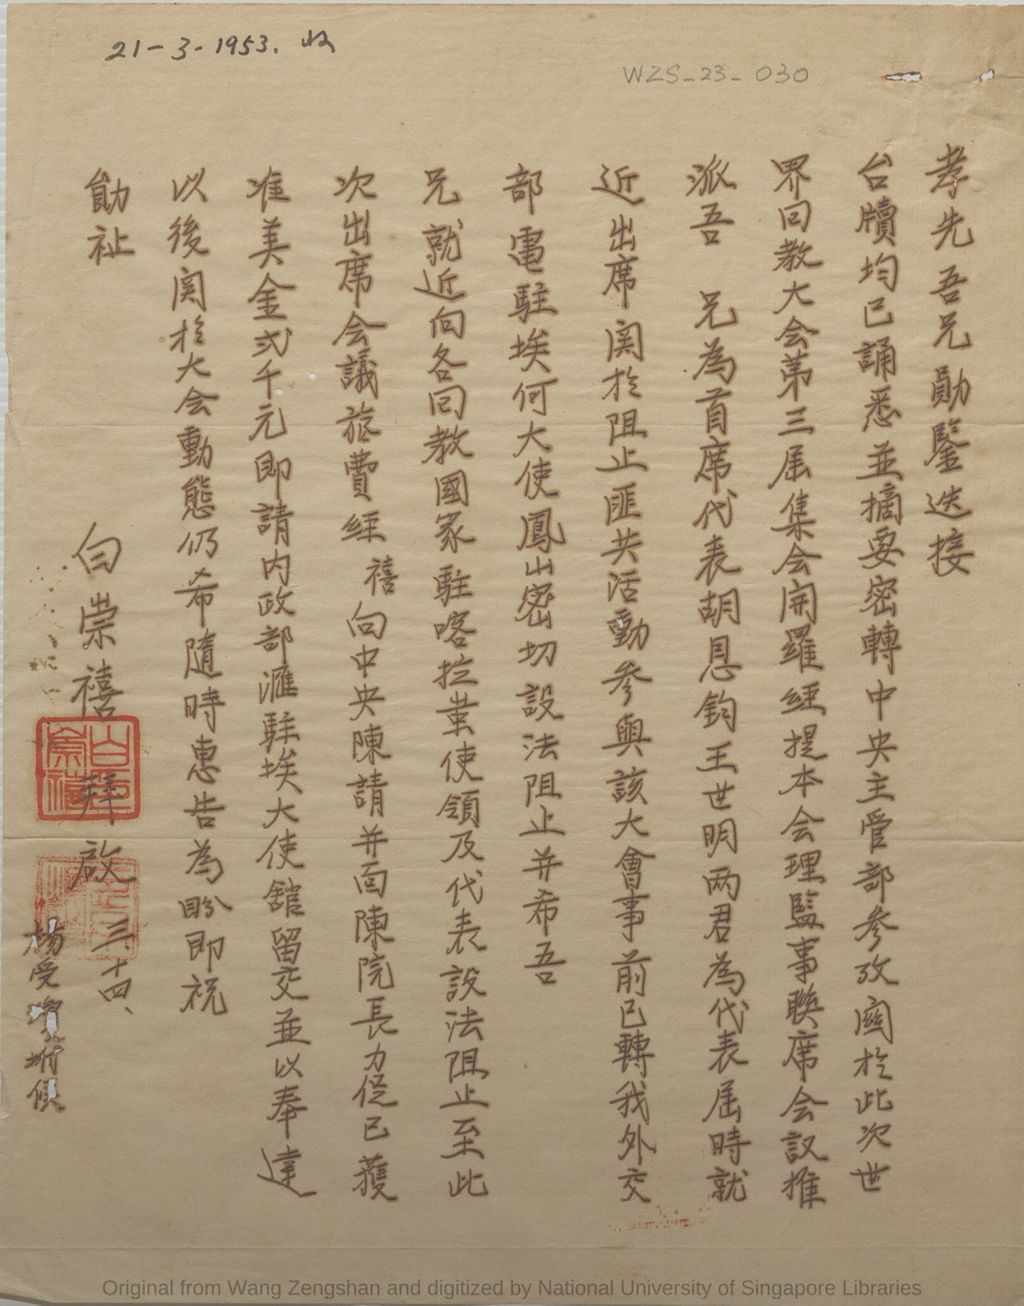 21-3-1953. 收
WZS-23-030
孝先吾兄勛鑒迭接
台牘均已誦悉並摘要密轉中央主管部參攷關於此次世
界回教大会第三屆集会開羅經提本会理監事聯席会議推
派吾 兄為首席代表胡恩鈞王世明两君為代表屆時就
近出席関於阻止匪共活動參與該大會事前已轉我外交
部電駐埃何大使鳳山密切設法阻止并希吾
兄就近向各回教國家駐喀拉蚩使領及代表設法阻止至此
次出席会議旅費經 禧向中央陳請并面陳院長力促已獲
准美金弍千元即請内政部滙駐埃大使舘留交並以奉達
以後関於大会動態仍希隨時惠告為盼即祝
勛祉
白崇禧拜啟 三十四、
白崇禧
楊受瓊附候
Original from Wang Zengshan and digitized by National University of Singapore Libraries